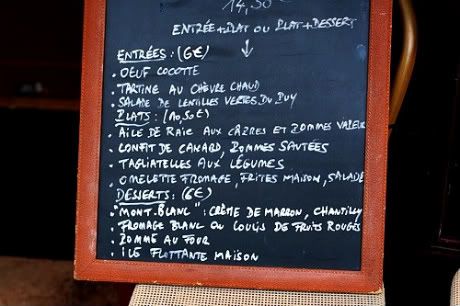 14,50€
ENTRÉE+PLAT OU PLAT+DESSERT
ENTRÉES : (6€)
• OEUF COCOTTE
• TARTINE AU CHÈVRE CHAUD
• SALADE DE LENTILLES VERTES DU PUY
PLATS : (10,50€)
• AILE DE RAIE AUX CÂPRES ET POMMES VAPEUR
• CONFIT DE CANARD, POMMES SAUTÉES
• TAGLIATELLES AUX LÉGUMES
• OMELETTE FROMAGE, FRITES MAISON, SALADE
DESSERTS : (6€)
• "MONT-BLANC" : CRÈME DE MARRON, CHANTILLY
• FROMAGE BLANC OU COULIS DE FRUITS ROUGES
• POMME AU FOUR
• ILE FLOTTANTE MAISON